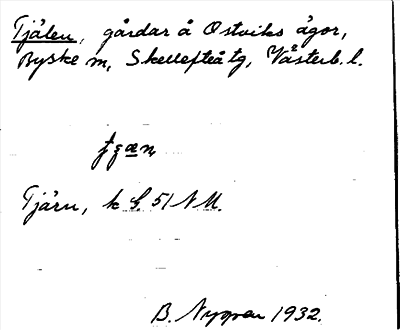 Tjälen, gårdar å Ostviks ägor,
Byske sn, Skellefteå tg, Västerb. l.
Tjärn, k bl. 51 NV.
B. Nygren 1932.